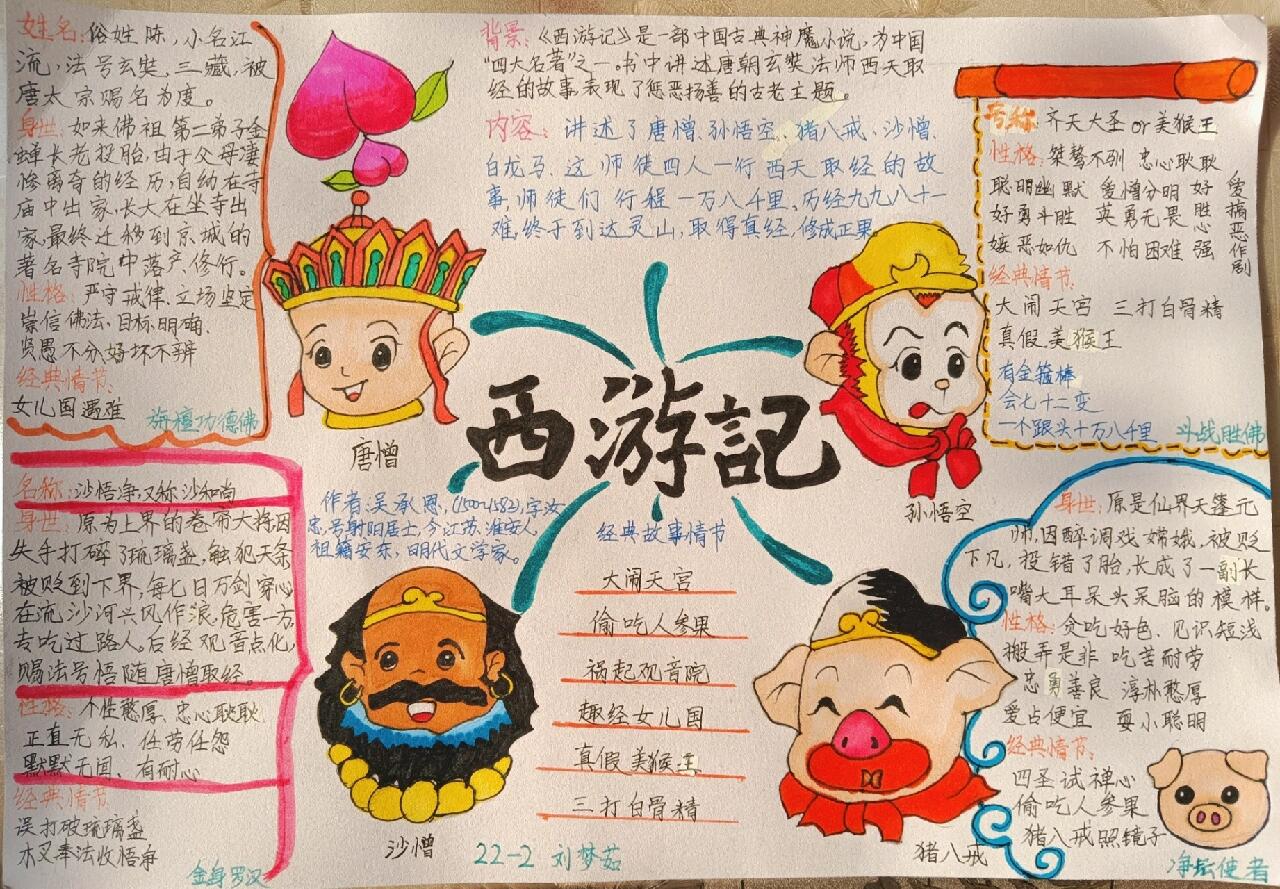 姓名:俗姓陈,小名江
流,法号玄奘,三藏,被
唐太宗赐名为度。
身世:如来佛祖第二弟子金
蝉长老投胎,由于父母凄
惨离奇的经历,自幼在寺
庙中出家,长大在坐寺出
家,最终迁移到京城的
著名寺院中落产、修行。
性格:严守戒律、立场坚定
崇信佛法、目标明确、
贤愚不分、好坏不辨
经典情节:
女儿国遇难
旃檀功德佛
背景:《西游记》是一部中国古典神魔小说,为中国
“四大名著”之一。书中讲述唐朝玄奘法师西天取
经的故事表现了惩恶扬善的古老主题。
内容:讲述了唐僧、孙悟空、猪八戒、沙僧、
白龙马、这师徒四人一行西天取经的故
事,师徒们行程一万八千里,历经九九八十一
难,终于到达灵山,取得真经,修成正果
号称:齐天大圣or美猴王
性格:桀骜不驯 忠心耿耿
聪明幽默 爱憎分明 好
好勇斗胜 英勇无畏 胜
嫉恶如仇 不怕困难 心强
爱搞恶作剧
经典情节:
大闹天宫 三打白骨精
真假美猴王
有金箍棒
会七十二变
一个跟头十万八千里
斗战胜佛
唐僧
西游記
孙悟空
名称:沙悟净,又称沙和尚
身世:原为上界的卷帘大将因
失手打碎了琉璃盏,触犯天条
被贬到下界,每七日万剑穿心
在流沙河兴风作浪,危害一方,
专吃过路人,后经观音点化,
赐法号悟随唐僧取经。
性格:个性憨厚、忠心耿耿、
正直无私、任劳任怨
默默无闻、有耐心
经典情节
误打破琉璃盏
木叉奉法收悟净
金身罗汉
作者:吴承恩,(1500-1582),字汝
忠,号射阳居士,今江苏,淮安人,
祖籍安东,明代文学家。
经典故事情节
大闹天宫
偷吃人参果
祸起观音院
趣经女儿国
真假美猴王
三打白骨精
沙僧
22-2 刘梦茹
身世:原是仙界天蓬元
帅,因醉调戏嫦娥,被贬
下凡,投错了胎,长成了一副长
嘴大耳呆头呆脑的模样。
性格:贪吃好色、见识短浅
搬弄是非 吃苦耐劳
忠勇善良 淳朴憨厚
爱占便宜 耍小聪明
经典情节:
四圣试禅心
偷吃人参果
猪八戒照镜子
猪八戒
净坛使者